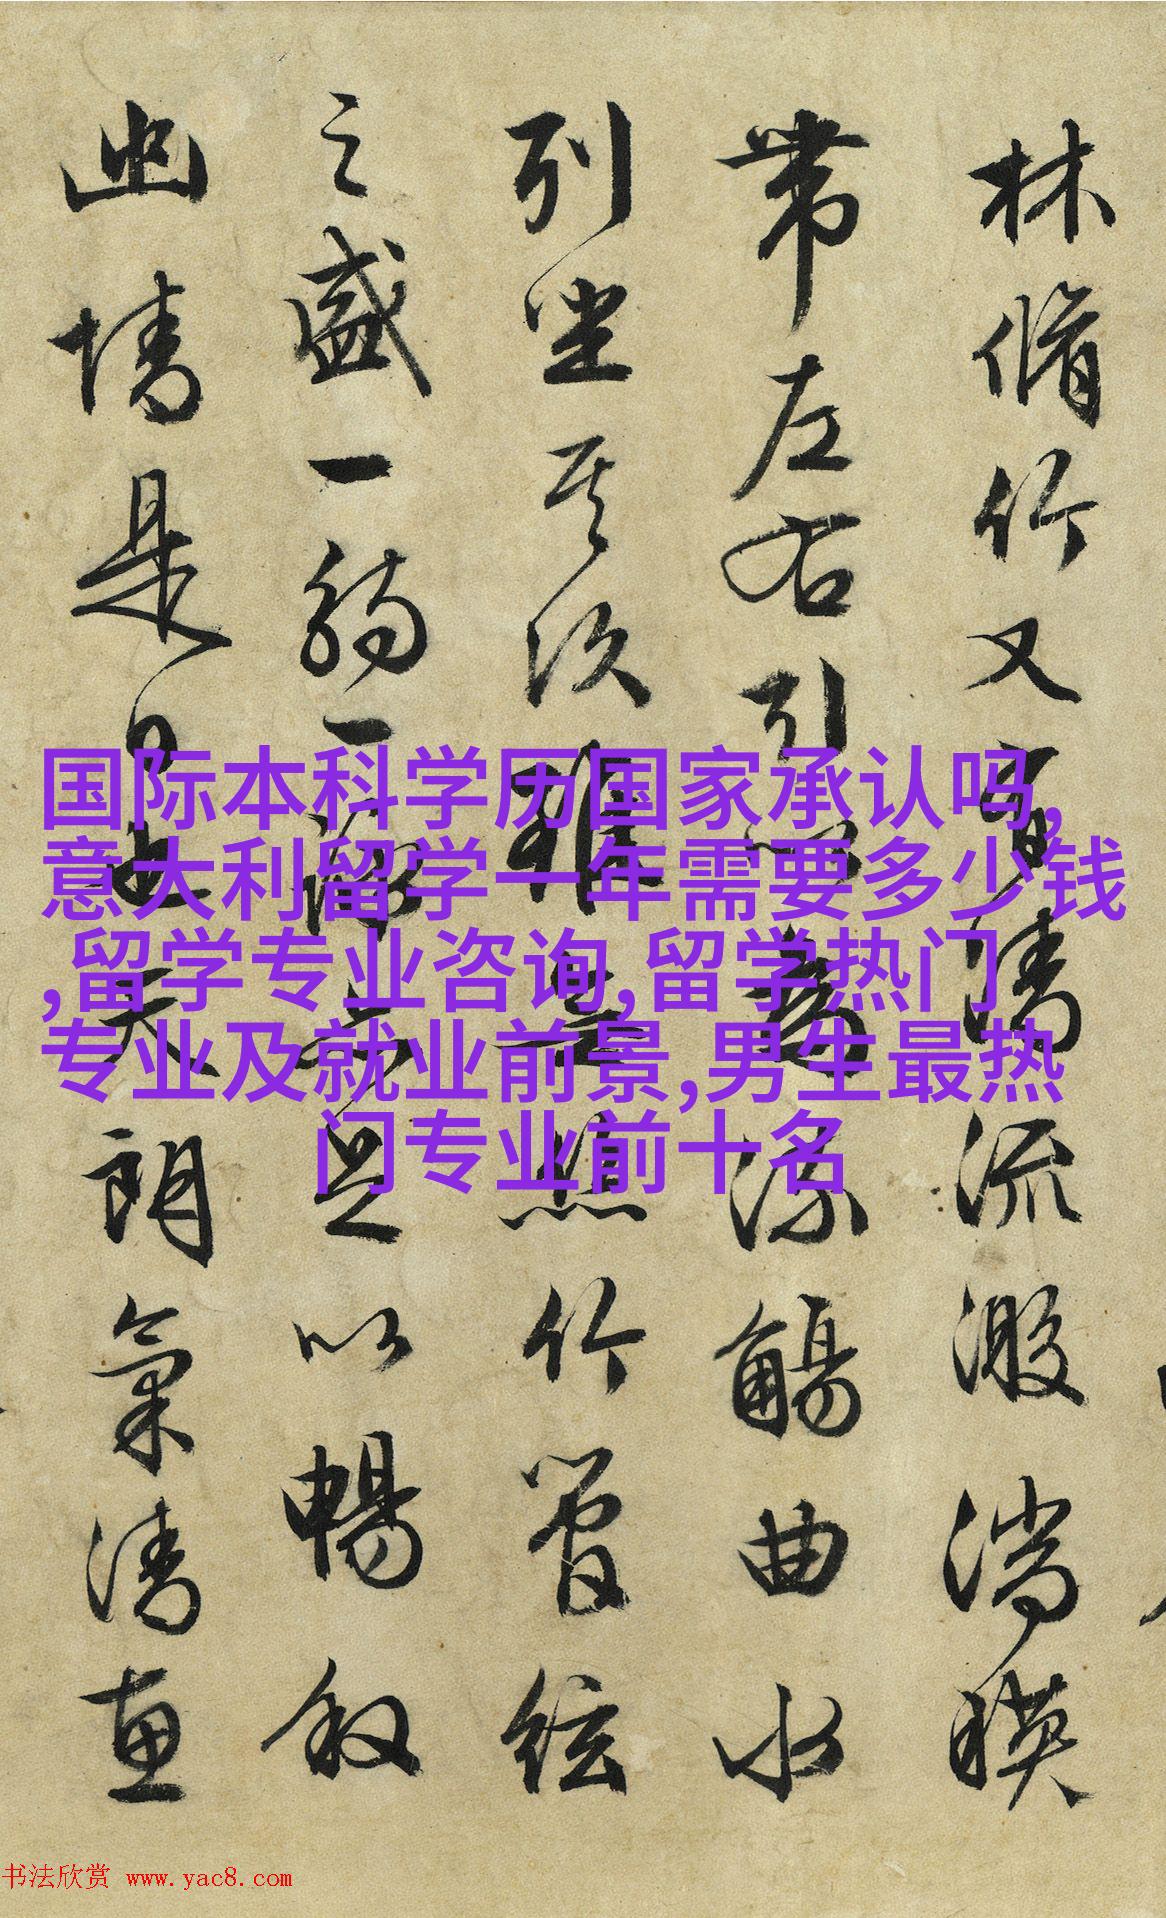 林脩竹又有清流激湍暎
带左右引以為流觴曲水
列坐其次雖無絲竹管弦
之盛一觴一詠亦足以暢叙
幽情是日也天朗氣清惠
国际本科学历国家承认吗,
意大利留学一年需要多少钱
,留学专业咨询,留学热门
专业及就业前景,男生最热
门专业前十名
书法欣赏 www.yac8.com